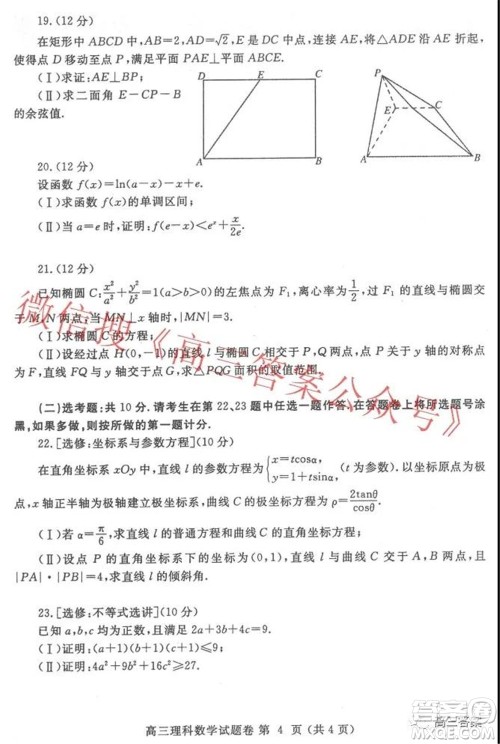 19.(12分)
在矩形中 ABCD 中,AB=2,AD=√2,E 是 DC 中点,连接 AE,将△ADE 沿 AE 折起,
使得点 D 移动至点 P,满足平面 PAE⊥平面 ABCE.
(Ⅰ)求证:AE⊥BP;
(Ⅱ)求二面角 E-CP-B
的余弦值.
D E C
A B
P
E C
A B
20.(12分)
设函数 f(x)=ln(a-x)-x+e.
(Ⅰ)求函数 f(x)的单调区间;
(Ⅱ)当 a=e 时,证明:f(e-x)<eˣ+x/2e.
21.(12分)
已知椭圆 C:x²/a²+y²/b²=1(a>b>0)的左焦点为 F₁,离心率为1/2,过 F₁ 的直线与椭圆交
于 M,N 两点,当 MN⊥x 轴时,|MN|=3.
(Ⅰ)求椭圆 C 的方程;
(Ⅱ)设经过点 H(0,-1)的直线 l 与椭圆 C 相交于 P,Q 两点,点 P 关于 y 轴的对称点
为 F,直线 FQ 与 y 轴交于点 G,求△PQG 面积的取值范围.
(二)选考题:共 10 分.请考生在第 22,23 题中任选一题作答.在答题卷上将所选题号涂
黑,如果多做,则按所做的第一题计分.
22.[选修:坐标系与参数方程](10分)
在直角坐标系 xOy 中,直线 l 的参数方程为{x=tcosα, y=1+tsinα, (t 为参数).以坐标原点为极
点,x 轴正半轴为极轴建立极坐标系,曲线 C 的极坐标方程为 ρ=2tanθ/cosθ.
(Ⅰ)若 α=π/6,求直线 l 的普通方程和曲线 C 的直角坐标方程;
(Ⅱ)设点 P 的直角坐标系下的坐标为(0,1),直线 l 与曲线 C 交于 A,B 两点,且
|PA|·|PB|=4,求直线 l 的倾斜角.
23.[选修:不等式选讲](10分)
已知 a,b,c 均为正数,且满足 2a+3b+4c=9.
(Ⅰ)证明:(a+1)(b+1)(c+1)≤9;
(Ⅱ)证明:4a²+9b²+16c²≥27.
高三理科数学试题卷 第 4 页(共 4 页)
微信搜《高三答案公众号》
高三答案